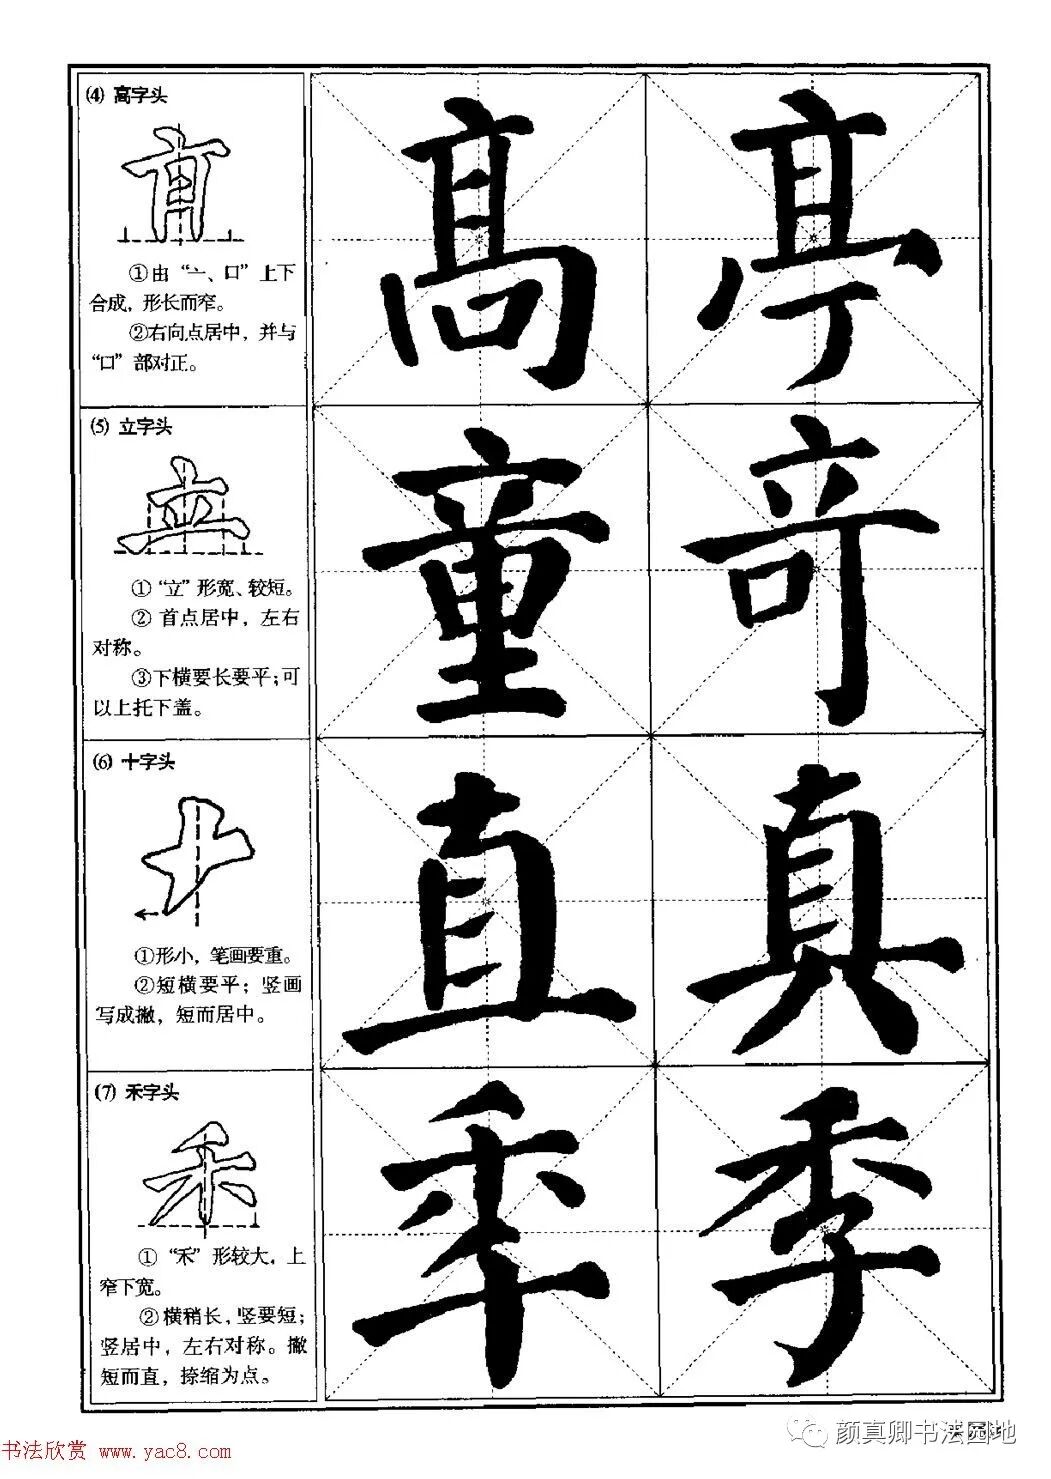 ⑷ 高字头
①由“亠、口”上下
合成，形长而窄。
②右向点居中，并与
“口”部对正。
高 亭
⑸ 立字头
①“立”形宽、较短。
② 首点居中，左右
对称。
③下横要长要平；可
以上托下盖。
立
童 竒
⑹ 十字头
①形小，笔画要重。
②短横要平；竖画
写成撇，短而居中。
十
直 真
⑺ 禾字头
①“禾”形较大，上
窄下宽。
②横稍长，竖要短；
竖居中，左右对称。撇
短而直，捺缩为点。
禾
季
书法欣赏 www.yac8.com
颜真卿书法园地